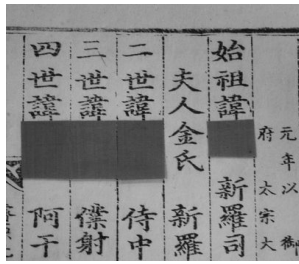 元年以
府太宗大
始祖諱 新羅司
夫人金氏 新羅
二世諱 侍中
三世諱 僕射
四世諱 阿干